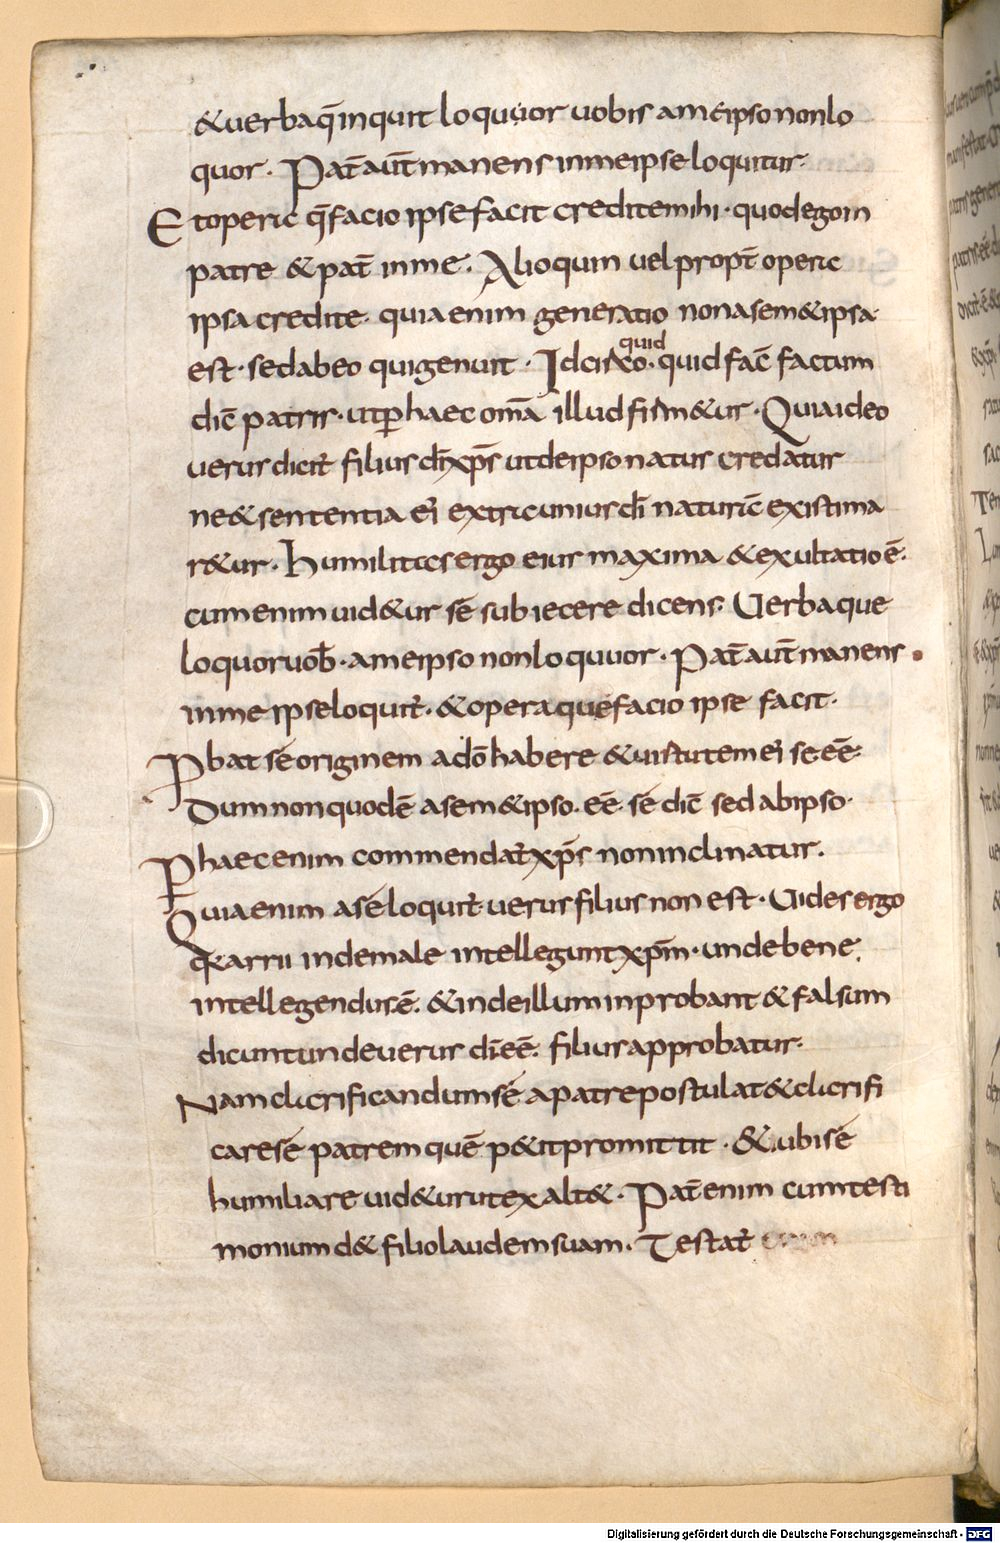 &uerbaq̄ inquit loquuor uobis ameipso nonlo
quor. Pat̄ aut̄ manens inmeipse loquitur.
Et opera q̄ facio ipse facit credite mihi. quodegoin
patre & pat̄ inme. Alioquin uel propt̄ opera
ipsa credite. quia enim generatio non asem&ipsa
est. sed abeo qui genuit. Idcirco. quid fac̄ factum
quid
dic̄ patris. utp̄ haec om̄a illud firm&ur. Quia ideo
uerus dicit̄ filius dī xp̄s ut deipso natus credatur
ne & sententia ei extra unius dī naturā existima
r&ur. humilitas ergo eius maxima & exultatio ē.
cum enim uid&ur sē subiecere dicens. Uerba que
loquor uob̄. ameipso non loquuor. Pat̄ aut̄ manens
inme ipse loquit̄. & opera quē facio ipse facit.
Pbat sē originem ado͞ habere & uirtutem ei se eē.
Dum non quod ē asem&ipso. eē. sē dic̄ sed abipso.
P haec enim commendat̄ xp̄s non inclinatur.
Quia enim asē loquit̄ uerus filius non est. Uides ergo
q̄ arrii inde male intellegunt xp̄m. unde bene
intellegendus ē. & inde illum inprobant & falsum
dicunt unde uerus dī eē. filius approbatur.
Nam clarificandum sē apatre postulat & clarifi
care sē patrem quē p&it promittit. & ubi sē
humiliare uid&ur ut exalt&. Pat̄ enim cum testi
monium d& filio laudem suam. Testat̄
Digitalisierung gefördert durch die Deutsche Forschungsgemeinschaft - DFG